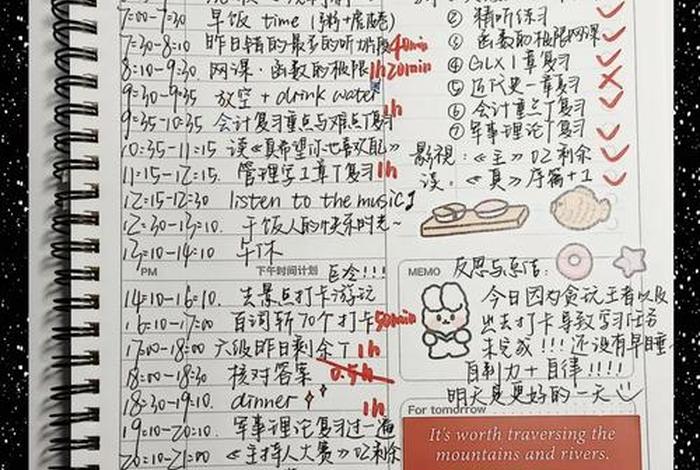 7:00-7:30 早饭 time
7:30-8:10 昨日错的最多的听力片段 40min
8:10-9:30 网课·函数的极限 1h20min
9:30-9:35 放空 + drink water
9:35-10:35 会计复习重点与难点T复习 1h
10:35-11:15 读《真希望你也喜欢自己》
11:15-12:15 管理学1章T复习 1h
12:15-12:30 listen to the music♪
12:30-13:10 干饭人的快乐时光~
13:10-14:10 午休
PM 下午时间计划 巨冷!!!
14:10-16:10 去景点打卡游玩
16:10-17:00 百词斩70个打卡 50min
17:00-18:00 六级昨日剩余T 1h
18:00-18:30 核对答案 0.5h
18:30-19:10 dinner
19:10-20:10 军事理论复习过一遍 1h
20:10-21:00 《主持人大赛》02剩余
② 精听练习 ✓
③ 函数的极限网课 ✓
④ GLX 1章复习 ✓
⑤ 近代史一章复习 ✗
⑥ 会计重点T复习 ✓
⑦ 军事理论T复习 ✓
影视:《主》02剩余 ✓
读:《真》序篇+1 ✓
MEMO 反思与总结:
今日因为贪玩王者以及
出去打卡导致学习任务
未完成!!!还没有早睡
自制力+自律!!!!
明天是更好的一天
For tomorrow
It's worth traversing the
mountains and rivers.